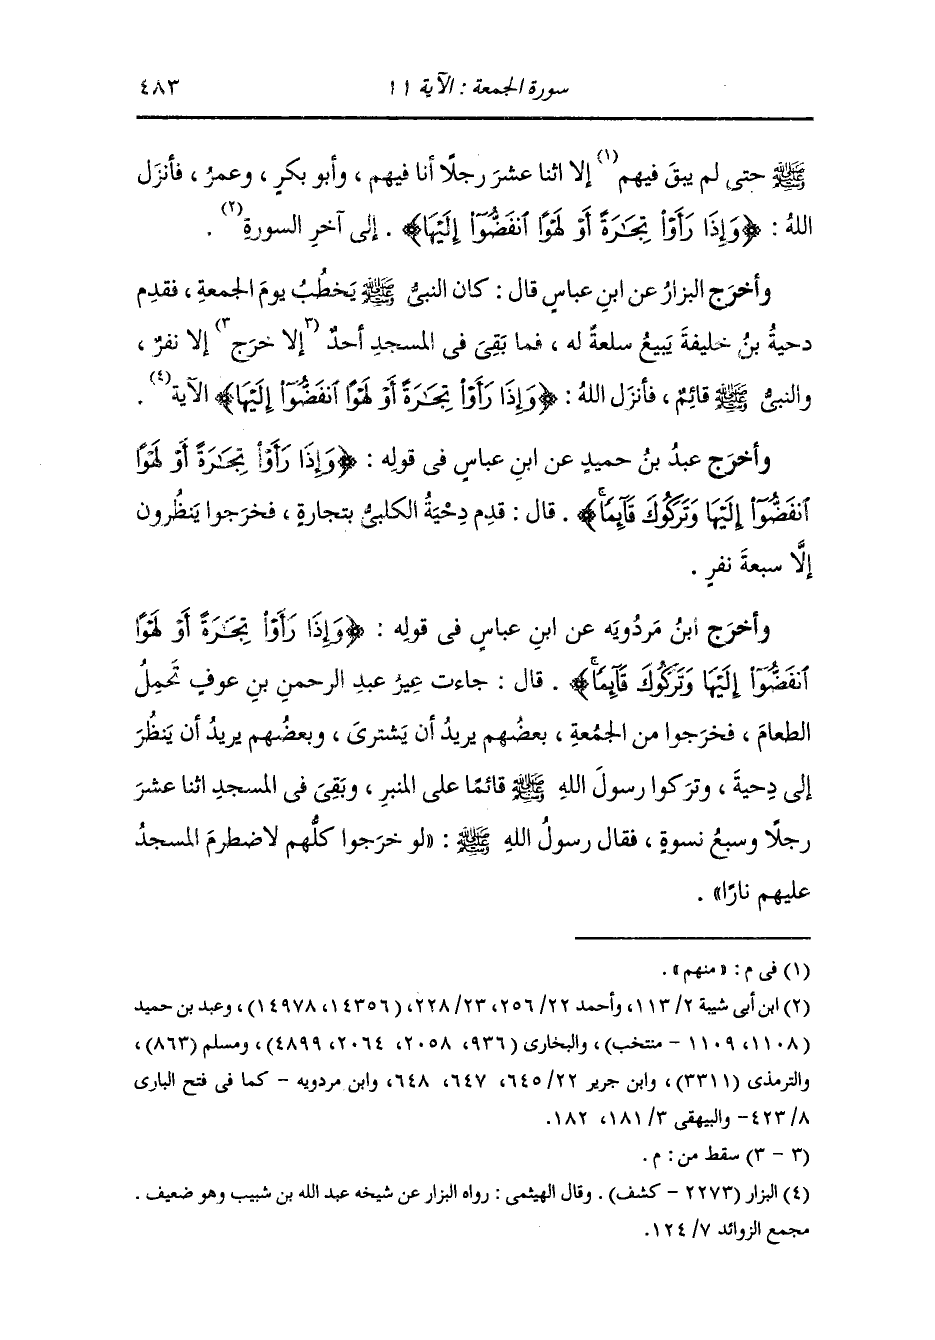 سورة الجمعة : الآية ١١ ٤٨٣
ﷺ حتى لم يبقَ فيهم(١) إلا اثنا عشرَ رجلًا أنا فيهم ، وأبو بكرٍ ، وعمرُ ، فأنزَل
اللهُ : ﴿وَإِذَا رَأَوْا۟ تِجَـٰرَةً أَوْ لَهْوًا ٱنفَضُّوٓا۟ إِلَيْهَا﴾ . إلى آخرِ السورةِ(٢) .
وأخرَج البزارُ عن ابنِ عباسٍ قال : كان النبىُّ ﷺ يَخطُبُ يومَ الجمعةِ ، فقدِم
دحيةُ بنُ خليفةَ يَبيعُ سلعةً له ، فما بَقِىَ فى المسجدِ أحدٌ (٣إلا خرَج٣) إلا نفرٌ ،
والنبىُّ ﷺ قائِمٌ ، فأنزَل اللهُ : ﴿وَإِذَا رَأَوْا۟ تِجَـٰرَةً أَوْ لَهْوًا ٱنفَضُّوٓا۟ إِلَيْهَا﴾ الآية(٤) .
وأخرَج عبدُ بنُ حميدٍ عن ابنِ عباسٍ فى قولِه : ﴿وَإِذَا رَأَوْا۟ تِجَـٰرَةً أَوْ لَهْوًا
ٱنفَضُّوٓا۟ إِلَيْهَا وَتَرَكُوكَ قَآئِمًا ۚ﴾ . قال : قدِم دِحْيَةُ الكلبىُّ بتجارةٍ ، فخرَجوا يَنظُرون
إلَّا سبعةَ نفرٍ .
وأخرَج ابنُ مَردُويَه عن ابنِ عباسٍ فى قولِه : ﴿وَإِذَا رَأَوْا۟ تِجَـٰرَةً أَوْ لَهْوًا
ٱنفَضُّوٓا۟ إِلَيْهَا وَتَرَكُوكَ قَآئِمًا ۚ﴾ . قال : جاءت عِيرُ عبدِ الرحمنِ بنِ عوفٍ تَحمِلُ
الطعامَ ، فخرَجوا من الجمُعةِ ، بعضُهم يريدُ أن يَشترىَ ، وبعضُهم يريدُ أن يَنظُرَ
إلى دِحيةَ ، وترَكوا رسولَ اللهِ ﷺ قائمًا على المنبرِ ، وبَقِىَ فى المسجدِ اثنا عشرَ
رجلًا وسبعُ نسوةٍ ، فقال رسولُ اللهِ ﷺ : «لو خرَجوا كلُّهم لاضطرمَ المسجدُ
عليهم نارًا» .
(١) فى م : «منهم» .
(٢) ابن أبى شيبة ٢/ ١١٣، وأحمد ٢٢/ ٢٥٦، ٢٣/ ٢٢٨، (١٤٣٥٦، ١٤٩٧٨) ، وعبد بن حميد
(١١٠٨، ١١٠٩ - منتخب) ، والبخارى (٩٣٦، ٢٠٥٨، ٢٠٦٤، ٤٨٩٩) ، ومسلم (٨٦٣) ،
والترمذى (٣٣١١) ، وابن جرير ٢٢/ ٦٤٥، ٦٤٧، ٦٤٨، وابن مردويه - كما فى فتح البارى
٨/ ٤٢٣- والبيهقى ٣/ ١٨١، ١٨٢.
(٣ - ٣) سقط من : م .
(٤) البزار (٢٢٧٣ - كشف) . وقال الهيثمى : رواه البزار عن شيخه عبد الله بن شبيب وهو ضعيف .
مجمع الزوائد ٧/ ١٢٤.